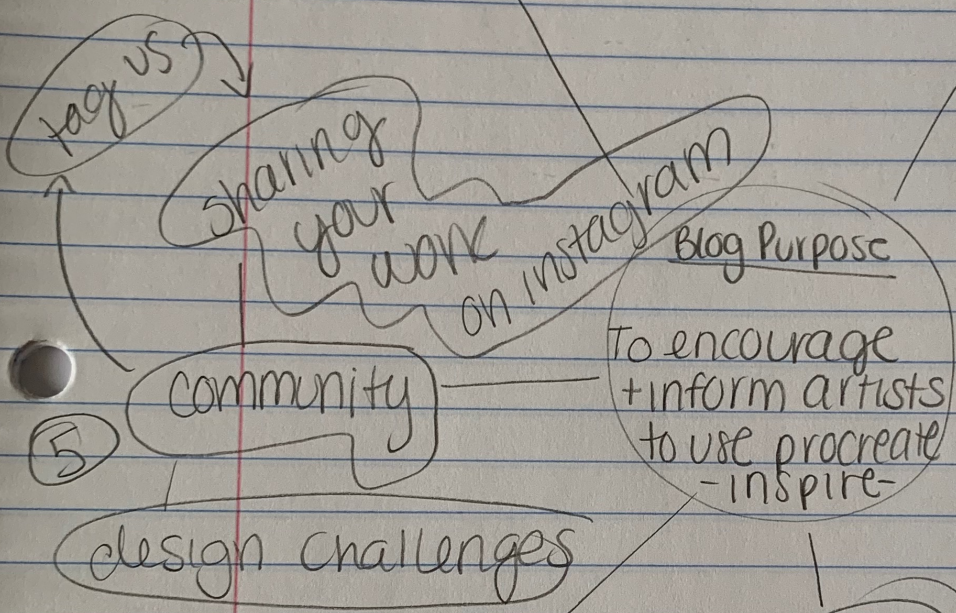 tag us
sharing
your
work
on instagram
Blog Purpose
To encourage
+inform artists
to use procreate
-inspire-
community
5
design challenges